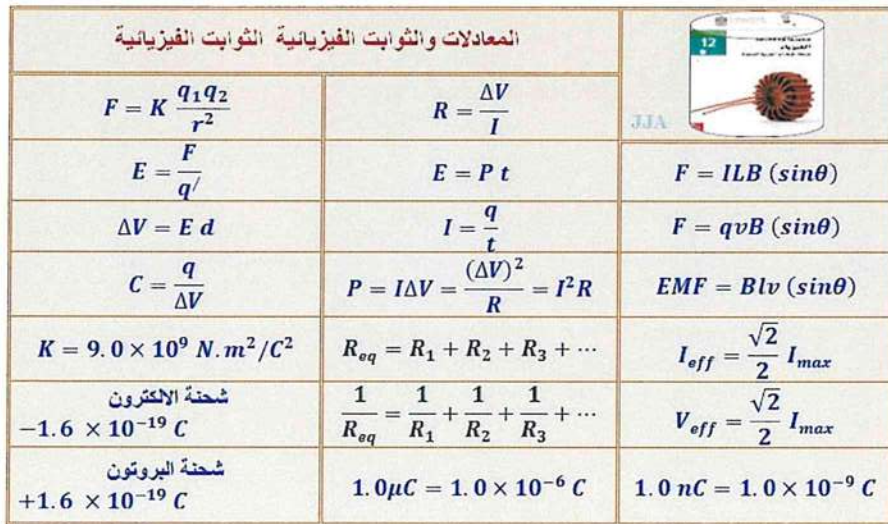 المعادلات والثوابت الفيزيائية الثوابت الفيزيائية
12
الفيزياء
JJA
F = K q₁q₂/r²
R = ΔV/I
E = F/q′
E = P t
F = ILB (sinθ)
ΔV = E d
I = q/t
F = qvB (sinθ)
C = q/ΔV
P = IΔV = (ΔV)²/R = I²R
EMF = Blv (sinθ)
K = 9.0 × 10⁹ N.m²/C²
R_eq = R₁ + R₂ + R₃ + ⋯
I_eff = √2/2 I_max
شحنة الالكترون
−1.6 × 10⁻¹⁹ C
1/R_eq = 1/R₁ + 1/R₂ + 1/R₃ + ⋯
V_eff = √2/2 I_max
شحنة البروتون
+1.6 × 10⁻¹⁹ C
1.0μC = 1.0 × 10⁻⁶ C
1.0 nC = 1.0 × 10⁻⁹ C